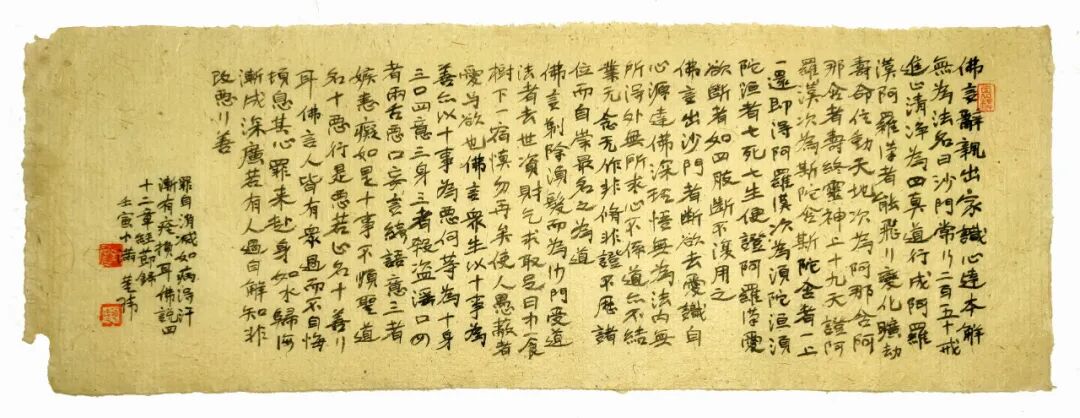 佛言辭親出家識心達本解
無為法名曰沙門常行二百五十戒
進止清淨為四真道行成阿羅
漢阿羅漢者能飛行變化曠劫
壽命住動天地次為阿那含阿
那含者壽終靈神上十九天證阿
羅漢次為斯陀含斯陀含者一上
一還即得阿羅漢次為須陀洹須
陀洹者七死七生便證阿羅漢愛
欲斷者如四肢斷不復用之
佛言出沙門者斷欲去愛識自
心源達佛深理悟無為法內無
所得外無所求心不係道亦不結
業无念无作非修非證不歷諸
位而自崇最名之為道
佛言剃除鬚髮而為沙門受道
法者去世資財乞求取足日中一食
樹下一宿慎勿再矣使人愚蔽者
愛与欲也佛言眾生以十事為
善亦以十事為惡何等為十身
三口四意三身三者殺盜淫口四
者兩舌惡口妄言綺語意三者
嫉恚癡如是十事不順聖道
名十惡行是惡若止名十善行
耳佛言人皆有眾過而不自悔
頓息其心罪来赴身如水歸海
漸成深廣若有人過自解知非
改惡行善
罪自消滅如病得汗
漸有痊損耳佛說四
十二章經節錄
壬寅小滿